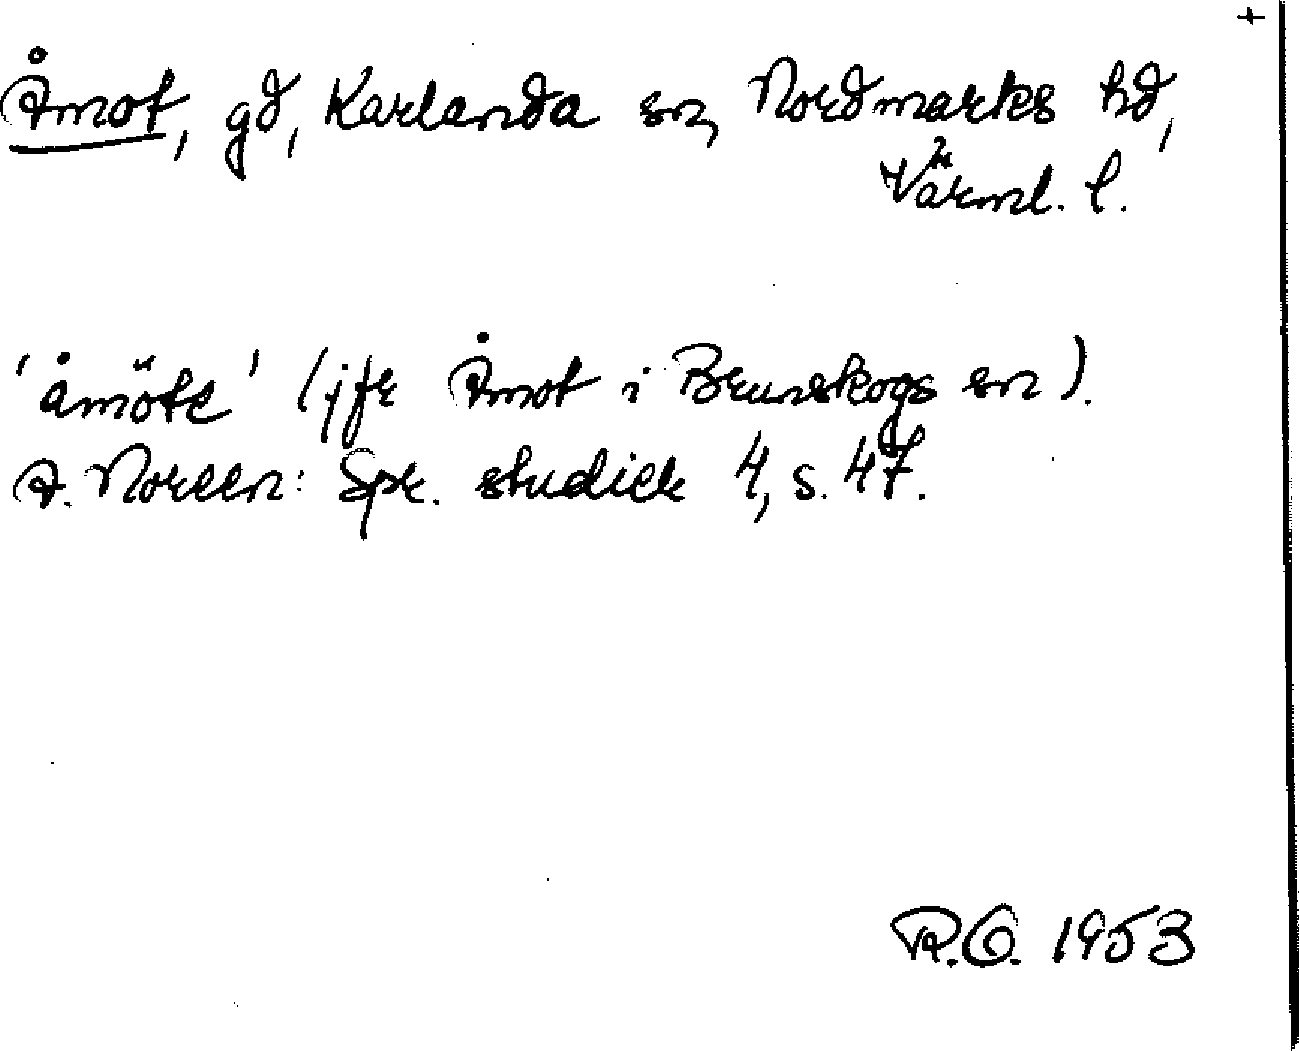 +
Åmot, gd, Karlanda sn, Nordmarks hd,
Värml. l.
'åmöte' (jfr Åmot i Brunskogs sn).
A. Noreen: Spr. studier 4, s. 47.
R.O. 1953